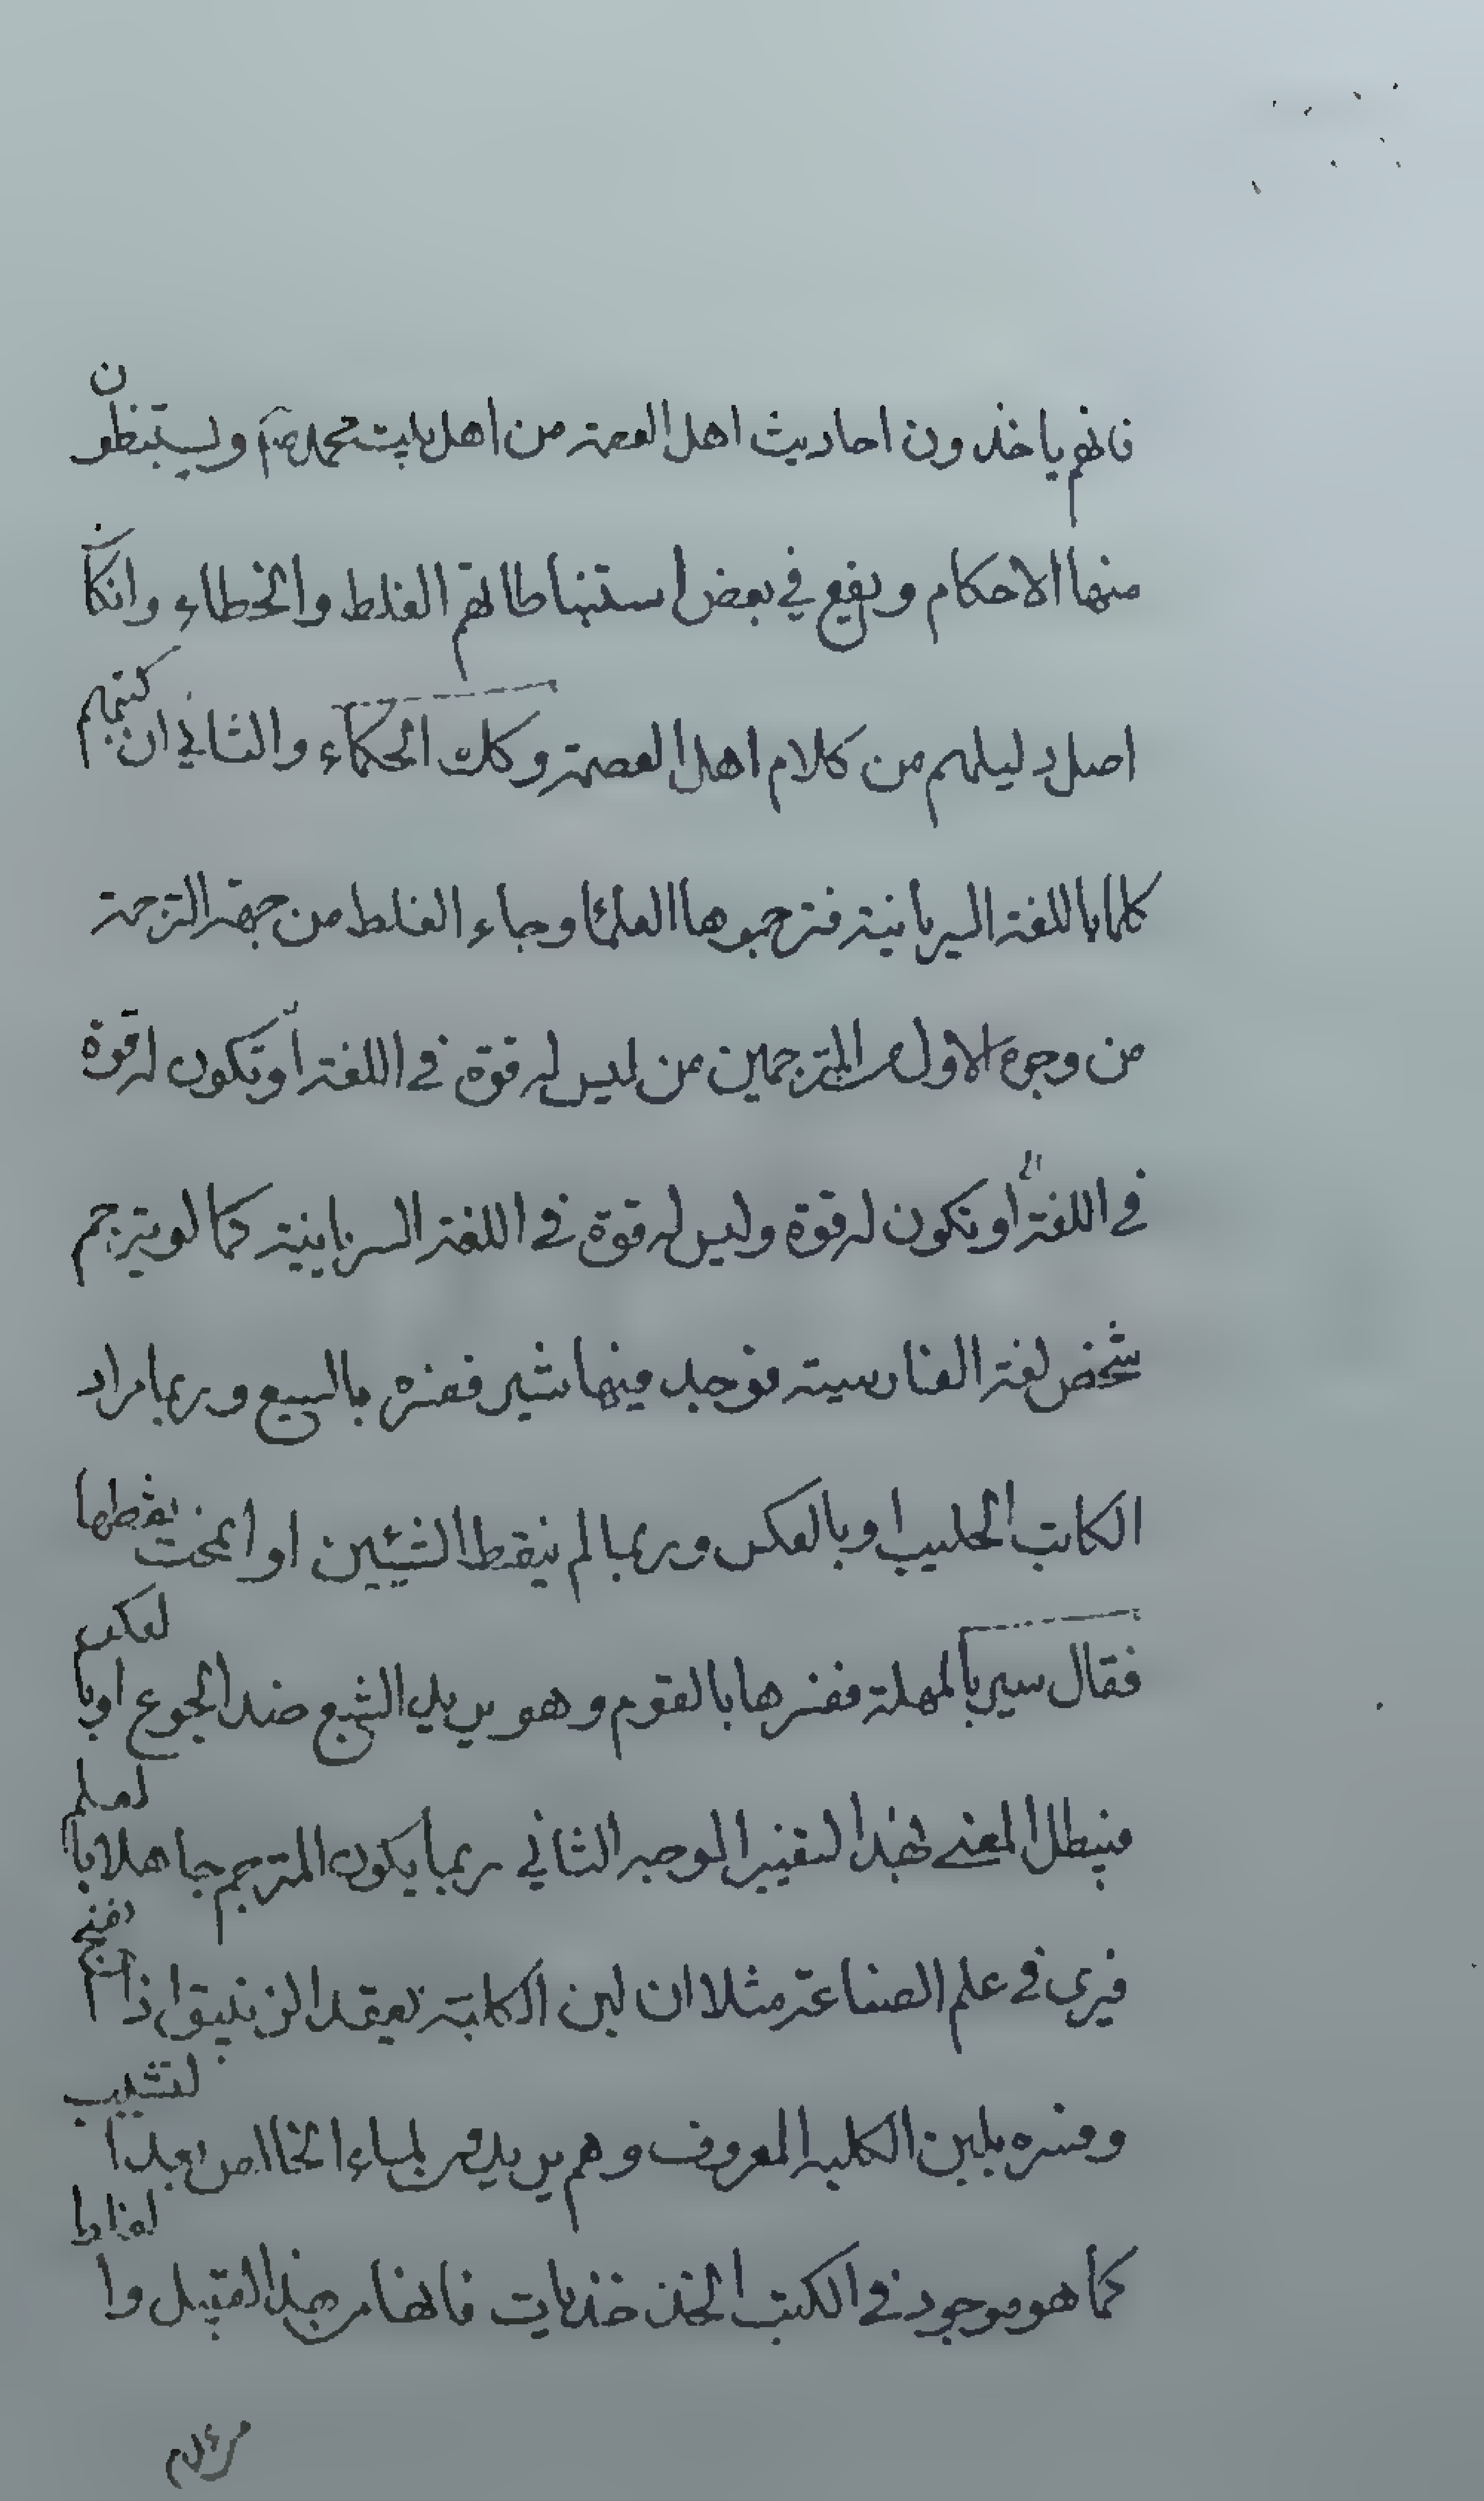 فانهم ياخذون احاديث اهل العصمة من اهل بيت محمد ص ويستنبطون
منها الاحكام ويقع في بعض استنباطاتهم الغلط والخطاء وانكان
اصل دليلهم من كلام اهل العصمة وكك الحكماء والثاني ان كتبهم
كلها باللغة السريانية فترجموها العلما وجاء الغلط من جهة الترجمة
من وجوه الاول من المترجمين من ليس له قوة في اللغة أو تكون له قوة
في اللغة او تكون له قوة وليس له قوة في اللغة السريانية كما لو يترجم
شخص لغة الفارسية فوجد فيها شير ففسره بالسبع وربما اراد
الكاتب الحليب او بالعكس وربما لم ينقط الشين او انمحت نقطها
فقال سير بالمهملة ففسرها بالثوم وهو يريد الشبع ضد الجوع او بالعكس
فيبطل المعنى لهذا التغيير الوجه الثاني ربما يكون المترجم جاهلا بالعلم
فيرى في علم الصناعة مثلا ان لبن الكلبة يعقد الزيبق اذا
وفسره بلبن الكلبة المعروف وهم يريدون بالماء الخالص بعد التشبيب
كما هو موجود في الكتب الخذ خذيات فانها من هذا القبيل و